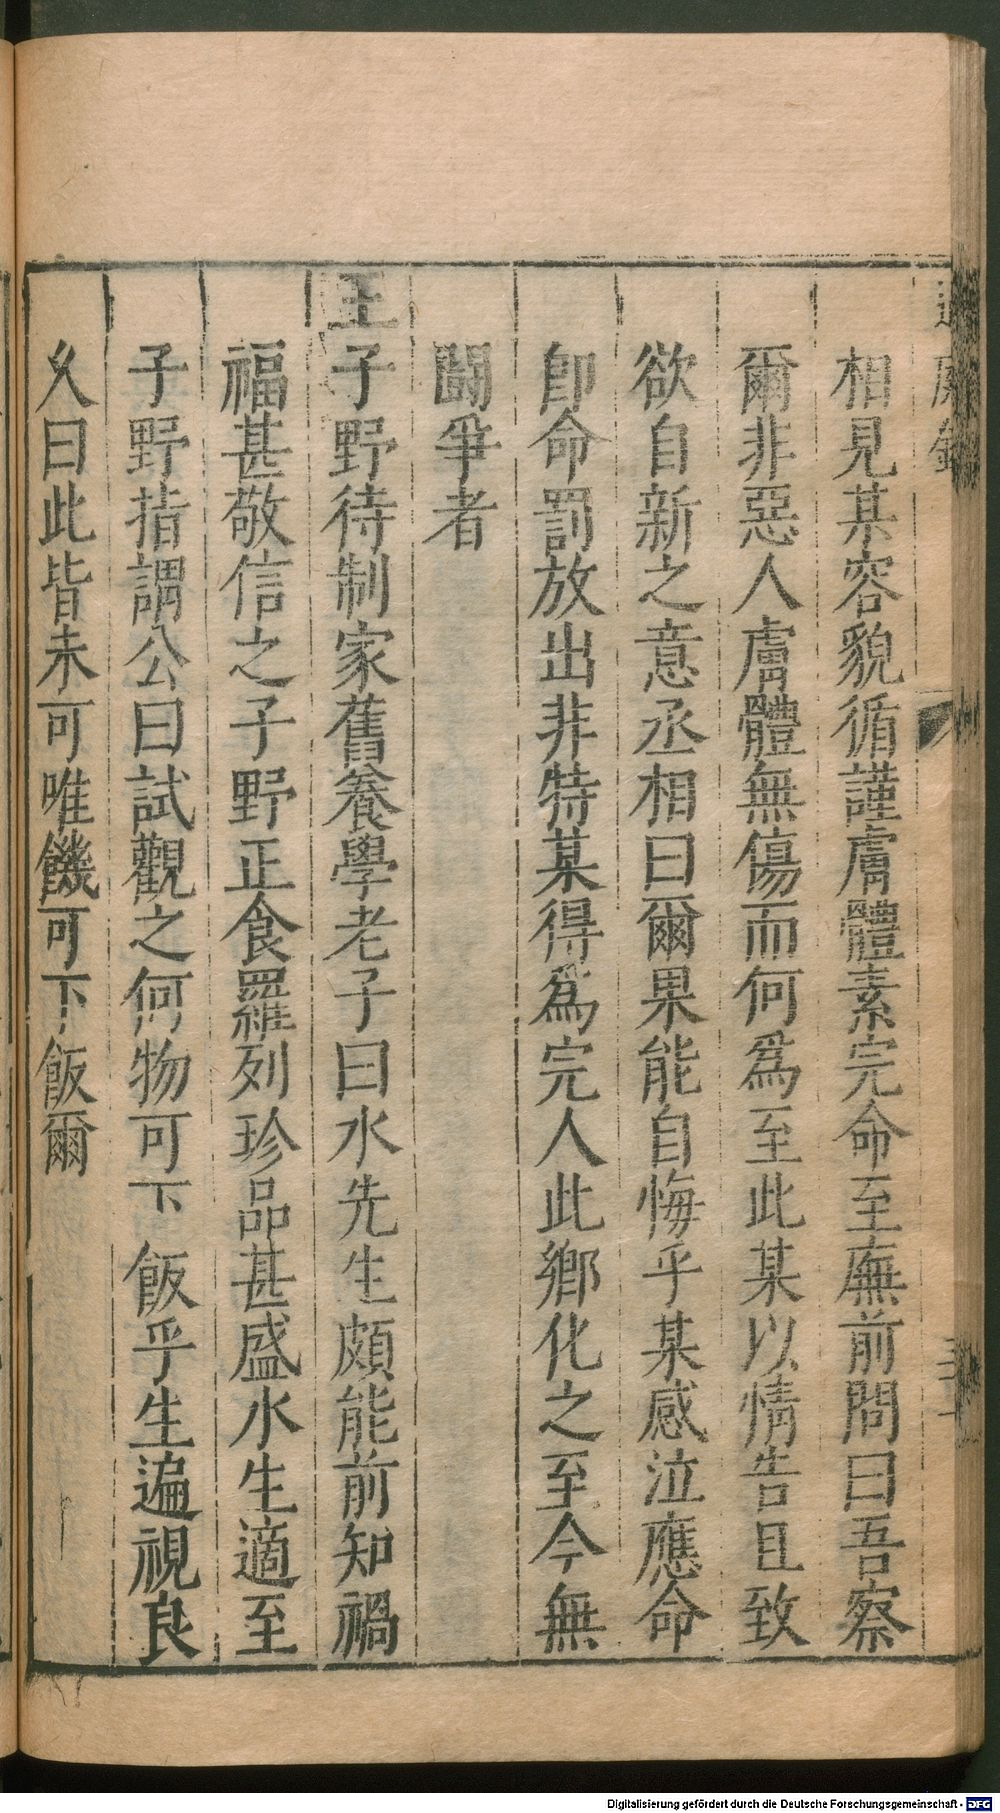 過庭錄
三十
相見某容貌循謹膚體素完命至廡前問曰吾察
爾非惡人膚體無傷而何爲至此某以情告且致
欲自新之意丞相曰爾果能自悔乎某感泣應命
卽命罰放出非特某得爲完人此鄉化之至今無
鬭爭者
王子野待制家舊養學老子曰水先生頗能前知禍
福甚敬信之子野正食羅列珍品甚盛水生適至
子野指謂公曰試觀之何物可下飯乎生遍視良
久曰此皆未可唯饑可下飯爾
Digitalisierung gefördert durch die Deutsche Forschungsgemeinschaft - DFG